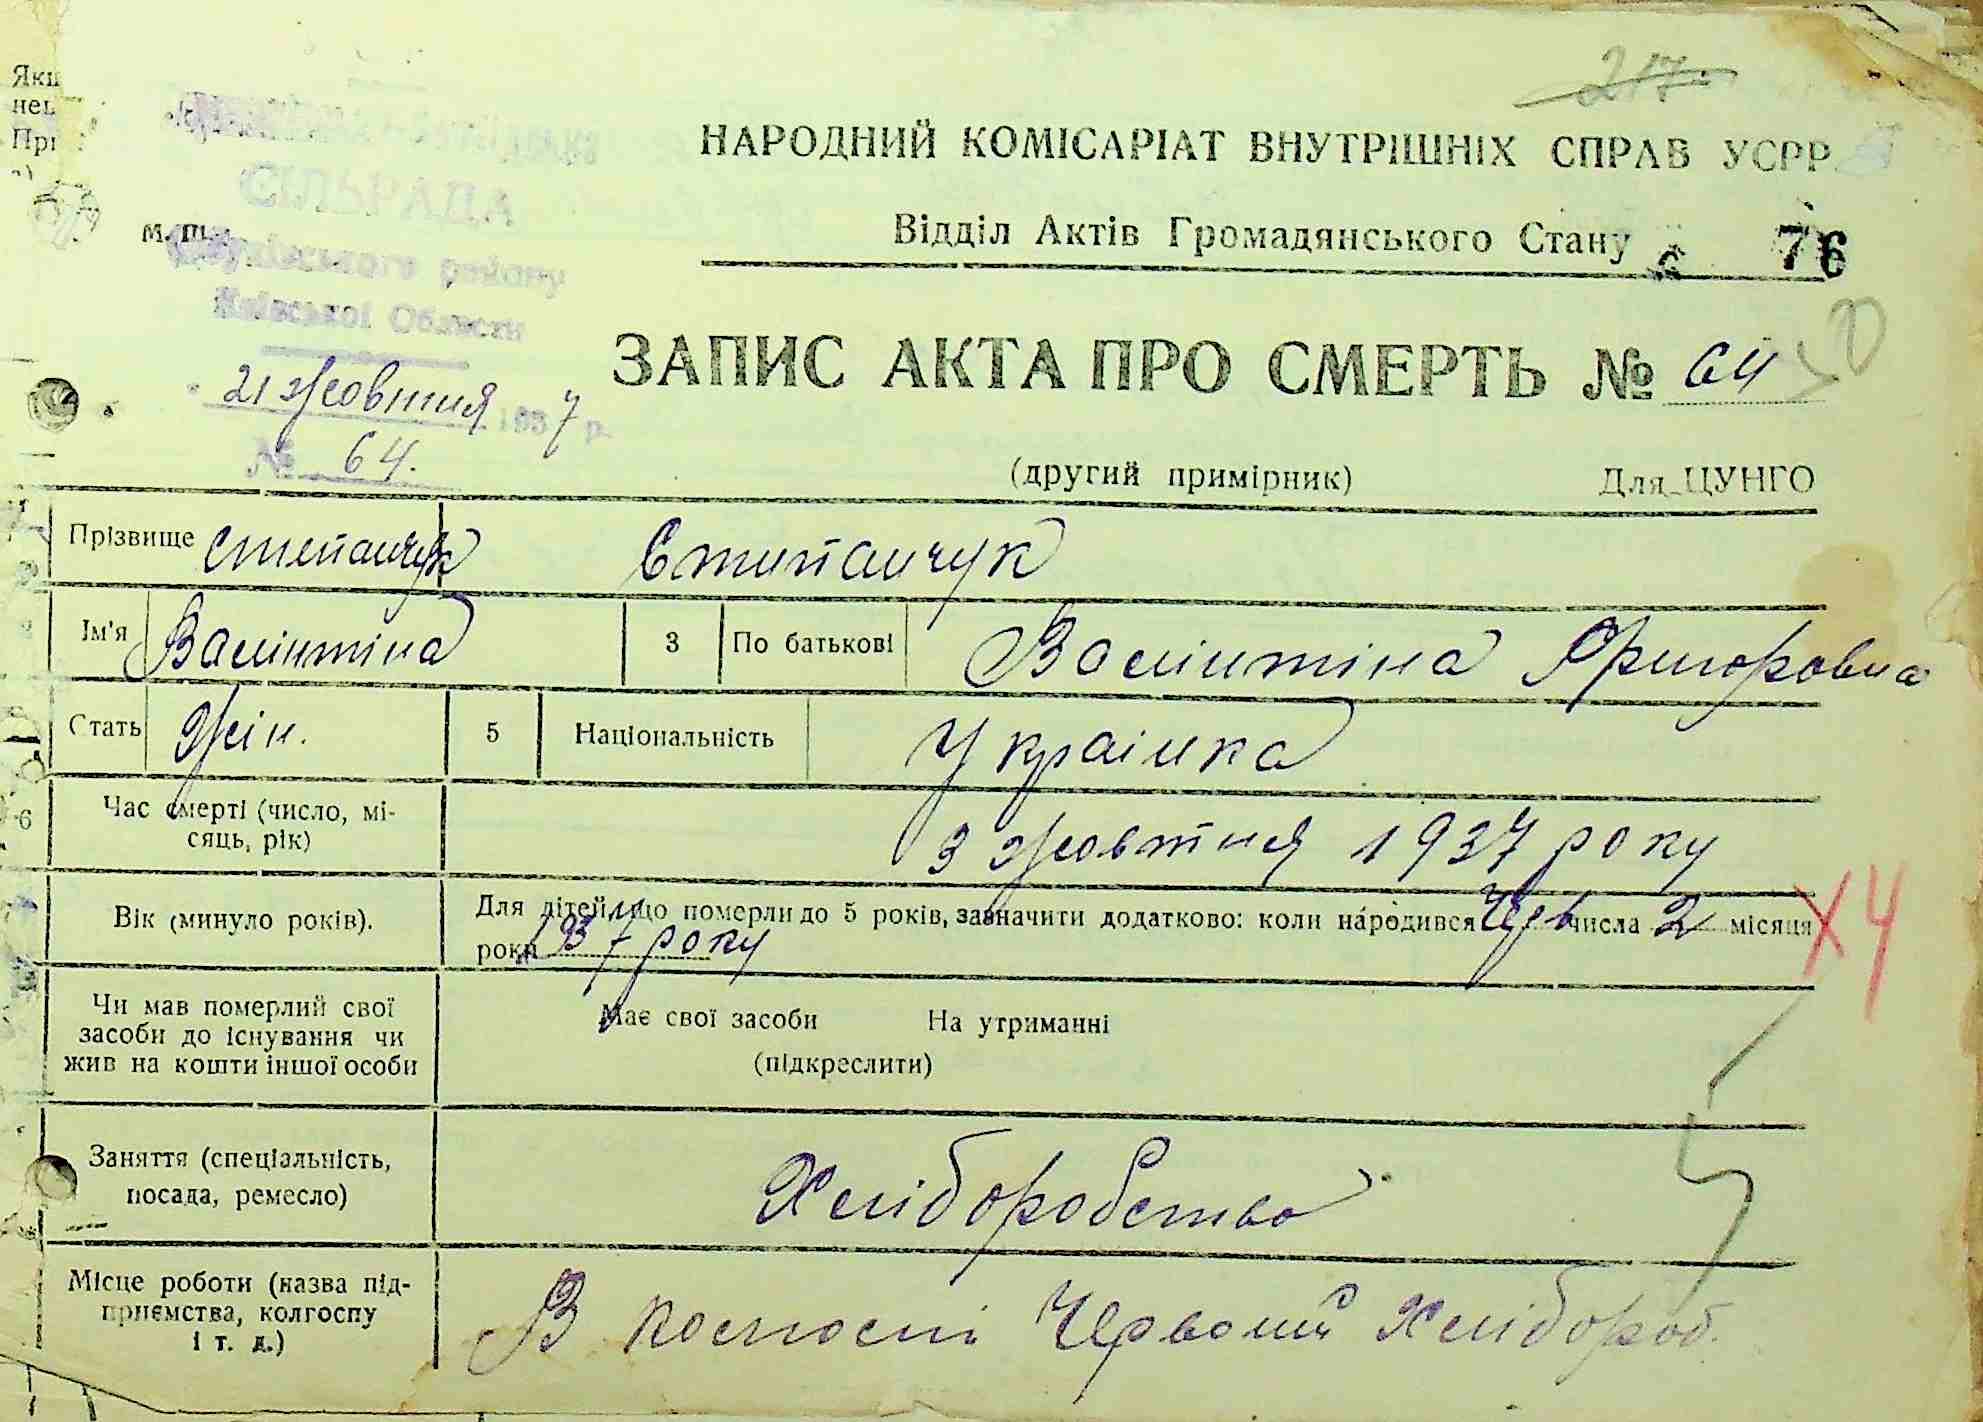 217.
НАРОДНИЙ КОМІСАРІАТ ВНУТРІШНІХ СПРАВ УСРР
СІЛЬРАДА
Відділ Актів Громадянського Стану 76
району
Київської Области
ЗАПИС АКТА ПРО СМЕРТЬ № 64
21 Жовтня 1937 р.
№ 64.
(другий примірник) Для ЦУНГО
Прізвище Степанчук Стипанчук
Ім'я Валінтіна 3 По батькові Валінтіна Григоровна
Стать Жін. 5 Національність Украінка
6 Час смерті (число, мі-
сяць, рік) 3 Жовтня 1937 року
Вік (минуло років). Для дітей, що померли до 5 років, зазначити додатково: коли народився Чер числа 2 місяця
роки 1937 року
Х4
Чи мав померлий свої
засоби до існування чи
жив на кошти іншої особи
Має свої засоби На утриманні
(підкреслити)
Заняття (спеціальність,
посада, ремесло) Хліборобство
Місце роботи (назва під-
приємства, колгоспу
і т. д.) В колгоспі Червоний Хлібороб.